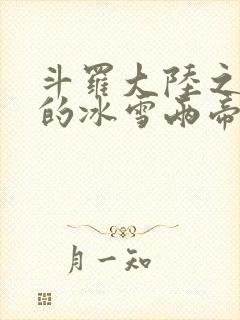 斗羅大陸之
的冰雪兩帝
月一知